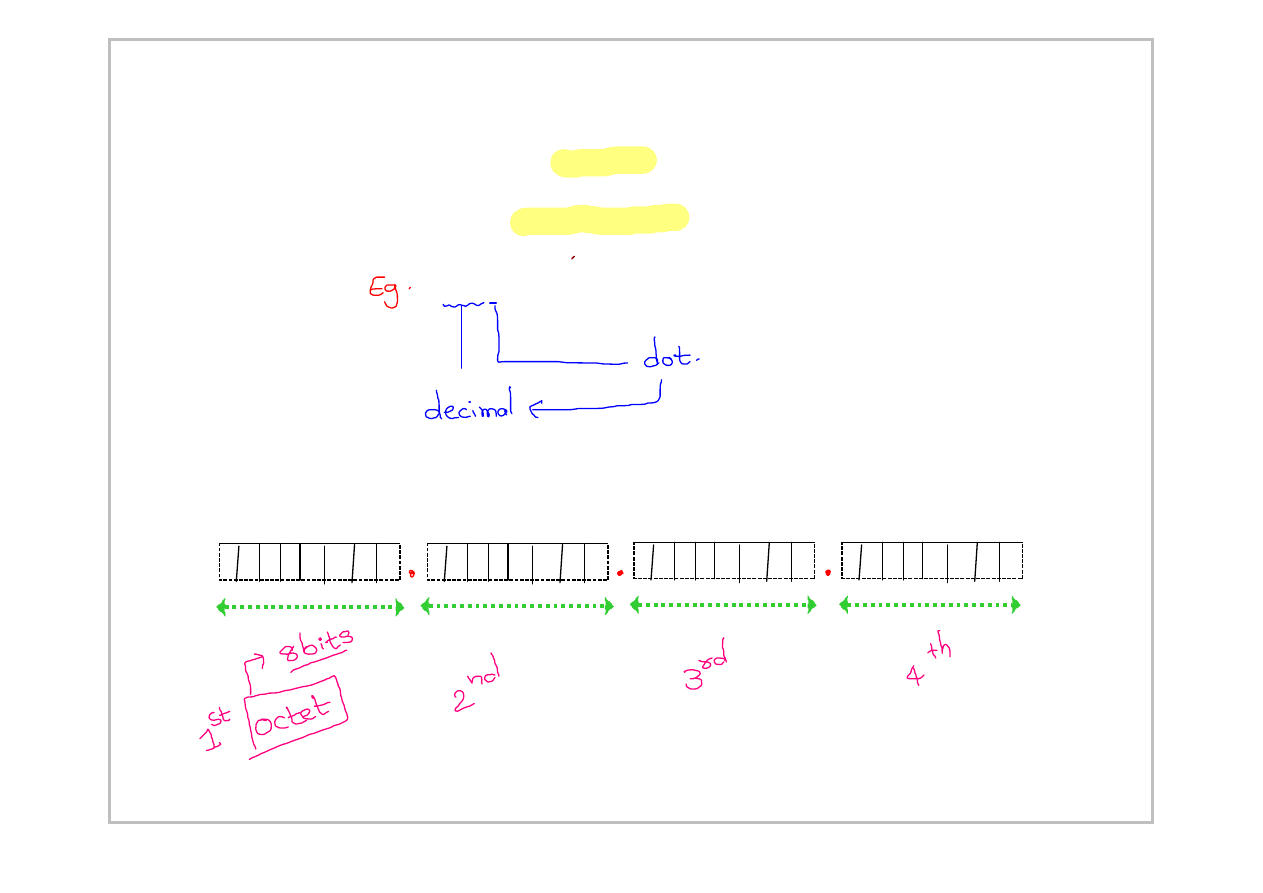 Eg.
dot.
decimal
8bits
1st octet
2nd
3rd
4th